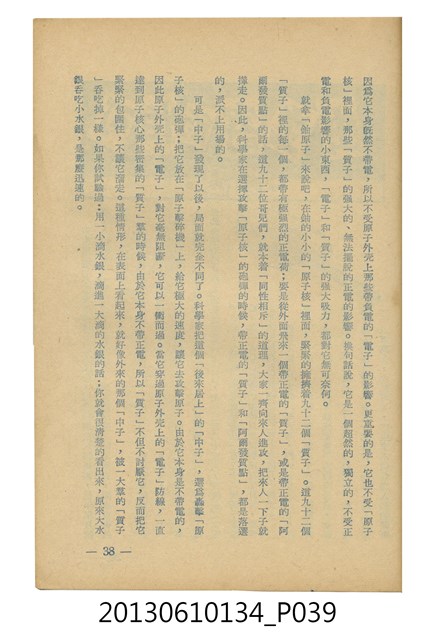 因爲它本身旣然不帶電，所以不受原子外壳上那些帶負電的「電子」的影響。更重要的是，它也不受「原子
核」裡面，那些「質子」的強大的、無法擺脫的正電的影響。換句話說，它是一個超然的，獨立的，不受正
電和負電影響的小東西，「電子」和「質子」的強大吸力，都對它無可奈何。
就拿「鈾原子」來說吧，在鈾的小小的「原子核」裡面，緊緊的擁擠着九十二個「質子」。這九十二個
「質子」裡的每一個，都帶有極強烈的正電荷；要是從外面飛來一個帶正電的「質子」，或是帶正電的「阿
爾發質點」的話，這九十二位哥兒們，就本着「同性相斥」的道理，大家一齊向來人進攻，把來人一下子就
彈走。因此，科學家在選擇攻擊「原子核」的砲彈的時候，帶正電的「質子」和「阿爾發質點」，都是落選
的，派不上用場的。
可是「中子」發現了以後，局面就完全不同了。科學家把這個「後來居上」的「中子」，選爲轟擊「原
子核」的砲彈；把它放在「原子擊碎機」上，給它極大的速度，讓它去攻擊原子。由於它本身是不帶電的，
因此原子外壳上的「電子」，對它毫無阻礙，它可以一衝而過。當它穿過原子外壳上的「電子」防線，一直
達到原子核心那些密集的「質子」羣的時候，由於它本身不帶正電，所以「質子」不但不討厭它，反而把它
緊緊的包圍住，不讓它溜走。這種情形，在表面上看起來，就好像外來的那個「中子」，被一大羣的「質子
」吞吃掉一樣。如果你試驗過：用一小滴水銀，滴進一大滴的水銀的話；你就會很清楚的看出來，原來大水
銀吞吃小水銀，是那麼迅速的。
— 38 —
20130610134_P039